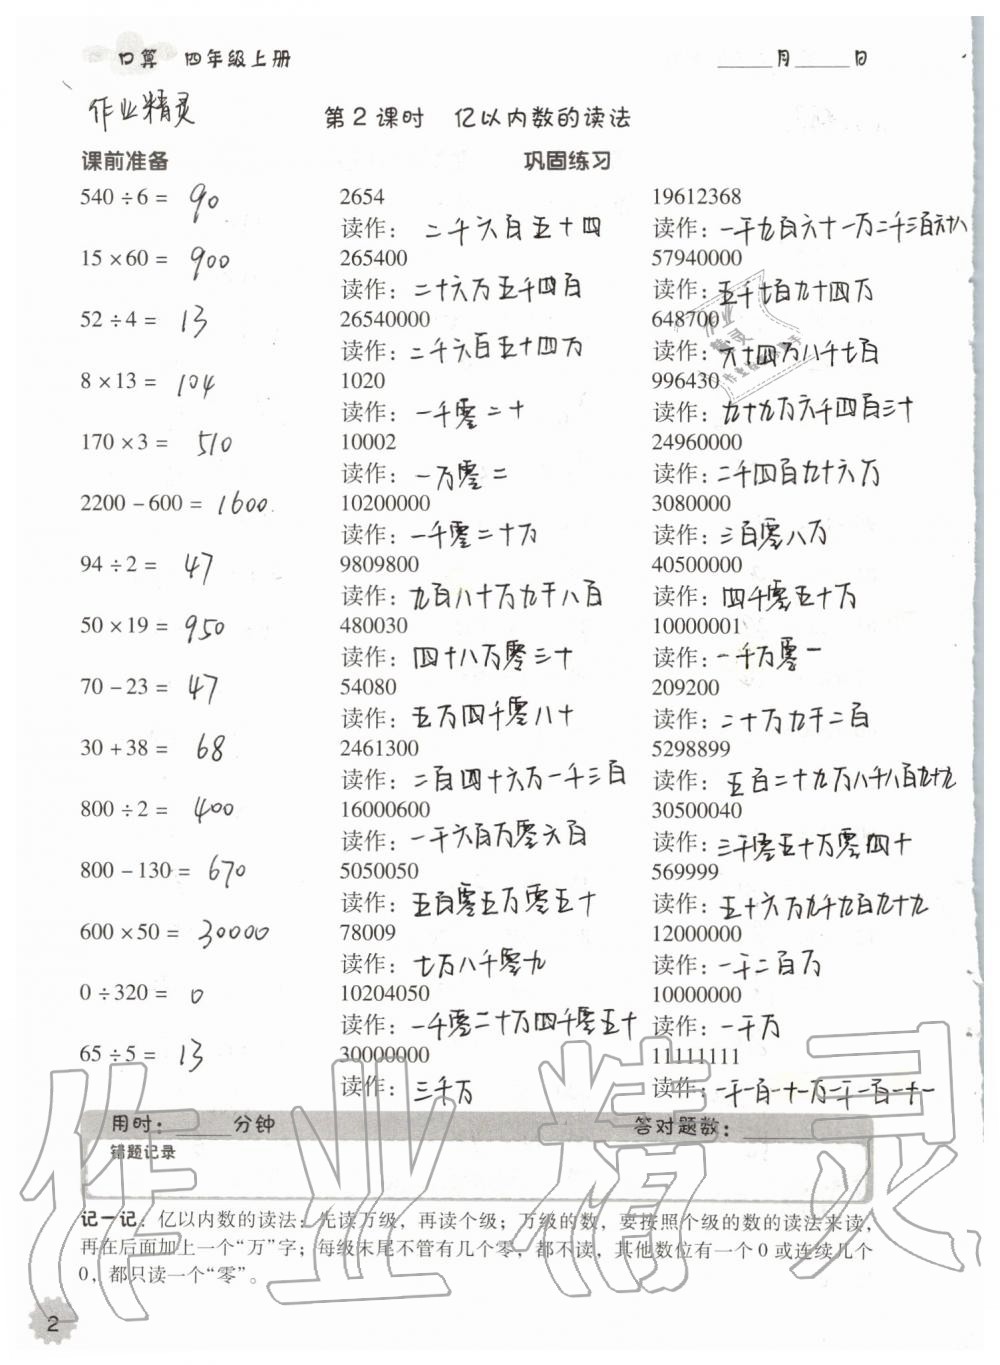 口算 四年级上册 ____月____日
作业精灵
第2课时 亿以内数的读法
课前准备
540÷6= 90
15×60= 900
52÷4= 13
8×13= 104
170×3= 510
2200-600= 1600
94÷2= 47
50×19= 950
70-23= 47
30+38= 68
800÷2= 400
800-130= 670
600×50= 30000
0÷320= 0
65÷5= 13
巩固练习
2654
读作: 二千六百五十四
265400
读作: 二十六万五千四百
26540000
读作: 二千六百五十四万
1020
读作: 一千零二十
10002
读作: 一万零二
10200000
读作: 一千零二十万
9809800
读作: 九百八十万九千八百
480030
读作: 四十八万零三十
54080
读作: 五万四千零八十
2461300
读作: 二百四十六万一千三百
16000600
读作: 一千六百万零六百
5050050
读作: 五百零五万零五十
78009
读作: 七万八千零九
10204050
读作: 一千零二十万四千零五十
30000000
读作: 三千万
19612368
读作: 一千九百六十一万二千三百六十八
57940000
读作: 五千七百九十四万
648700
读作: 六十四万八千七百
996430
读作: 九十九万六千四百三十
24960000
读作: 二千四百九十六万
3080000
读作: 三百零八万
40500000
读作: 四千零五十万
10000001
读作: 一千万零一
209200
读作: 二十万九千二百
5298899
读作: 五百二十九万八千八百九十九
30500040
读作: 三千零五十万零四十
569999
读作: 五十六万九千九百九十九
12000000
读作: 一千二百万
10000000
读作: 一千万
11111111
读作: 一千一百一十一万一千一百一十一
用时:____分钟 答对题数:____
错题记录
记一记: 亿以内数的读法: 先读万级, 再读个级; 万级的数, 要按照个级的数的读法来读,
再在后面加上一个“万”字; 每级末尾不管有几个零, 都不读, 其他数位有一个0或连续几个
0, 都只读一个“零”。
2
作业精灵